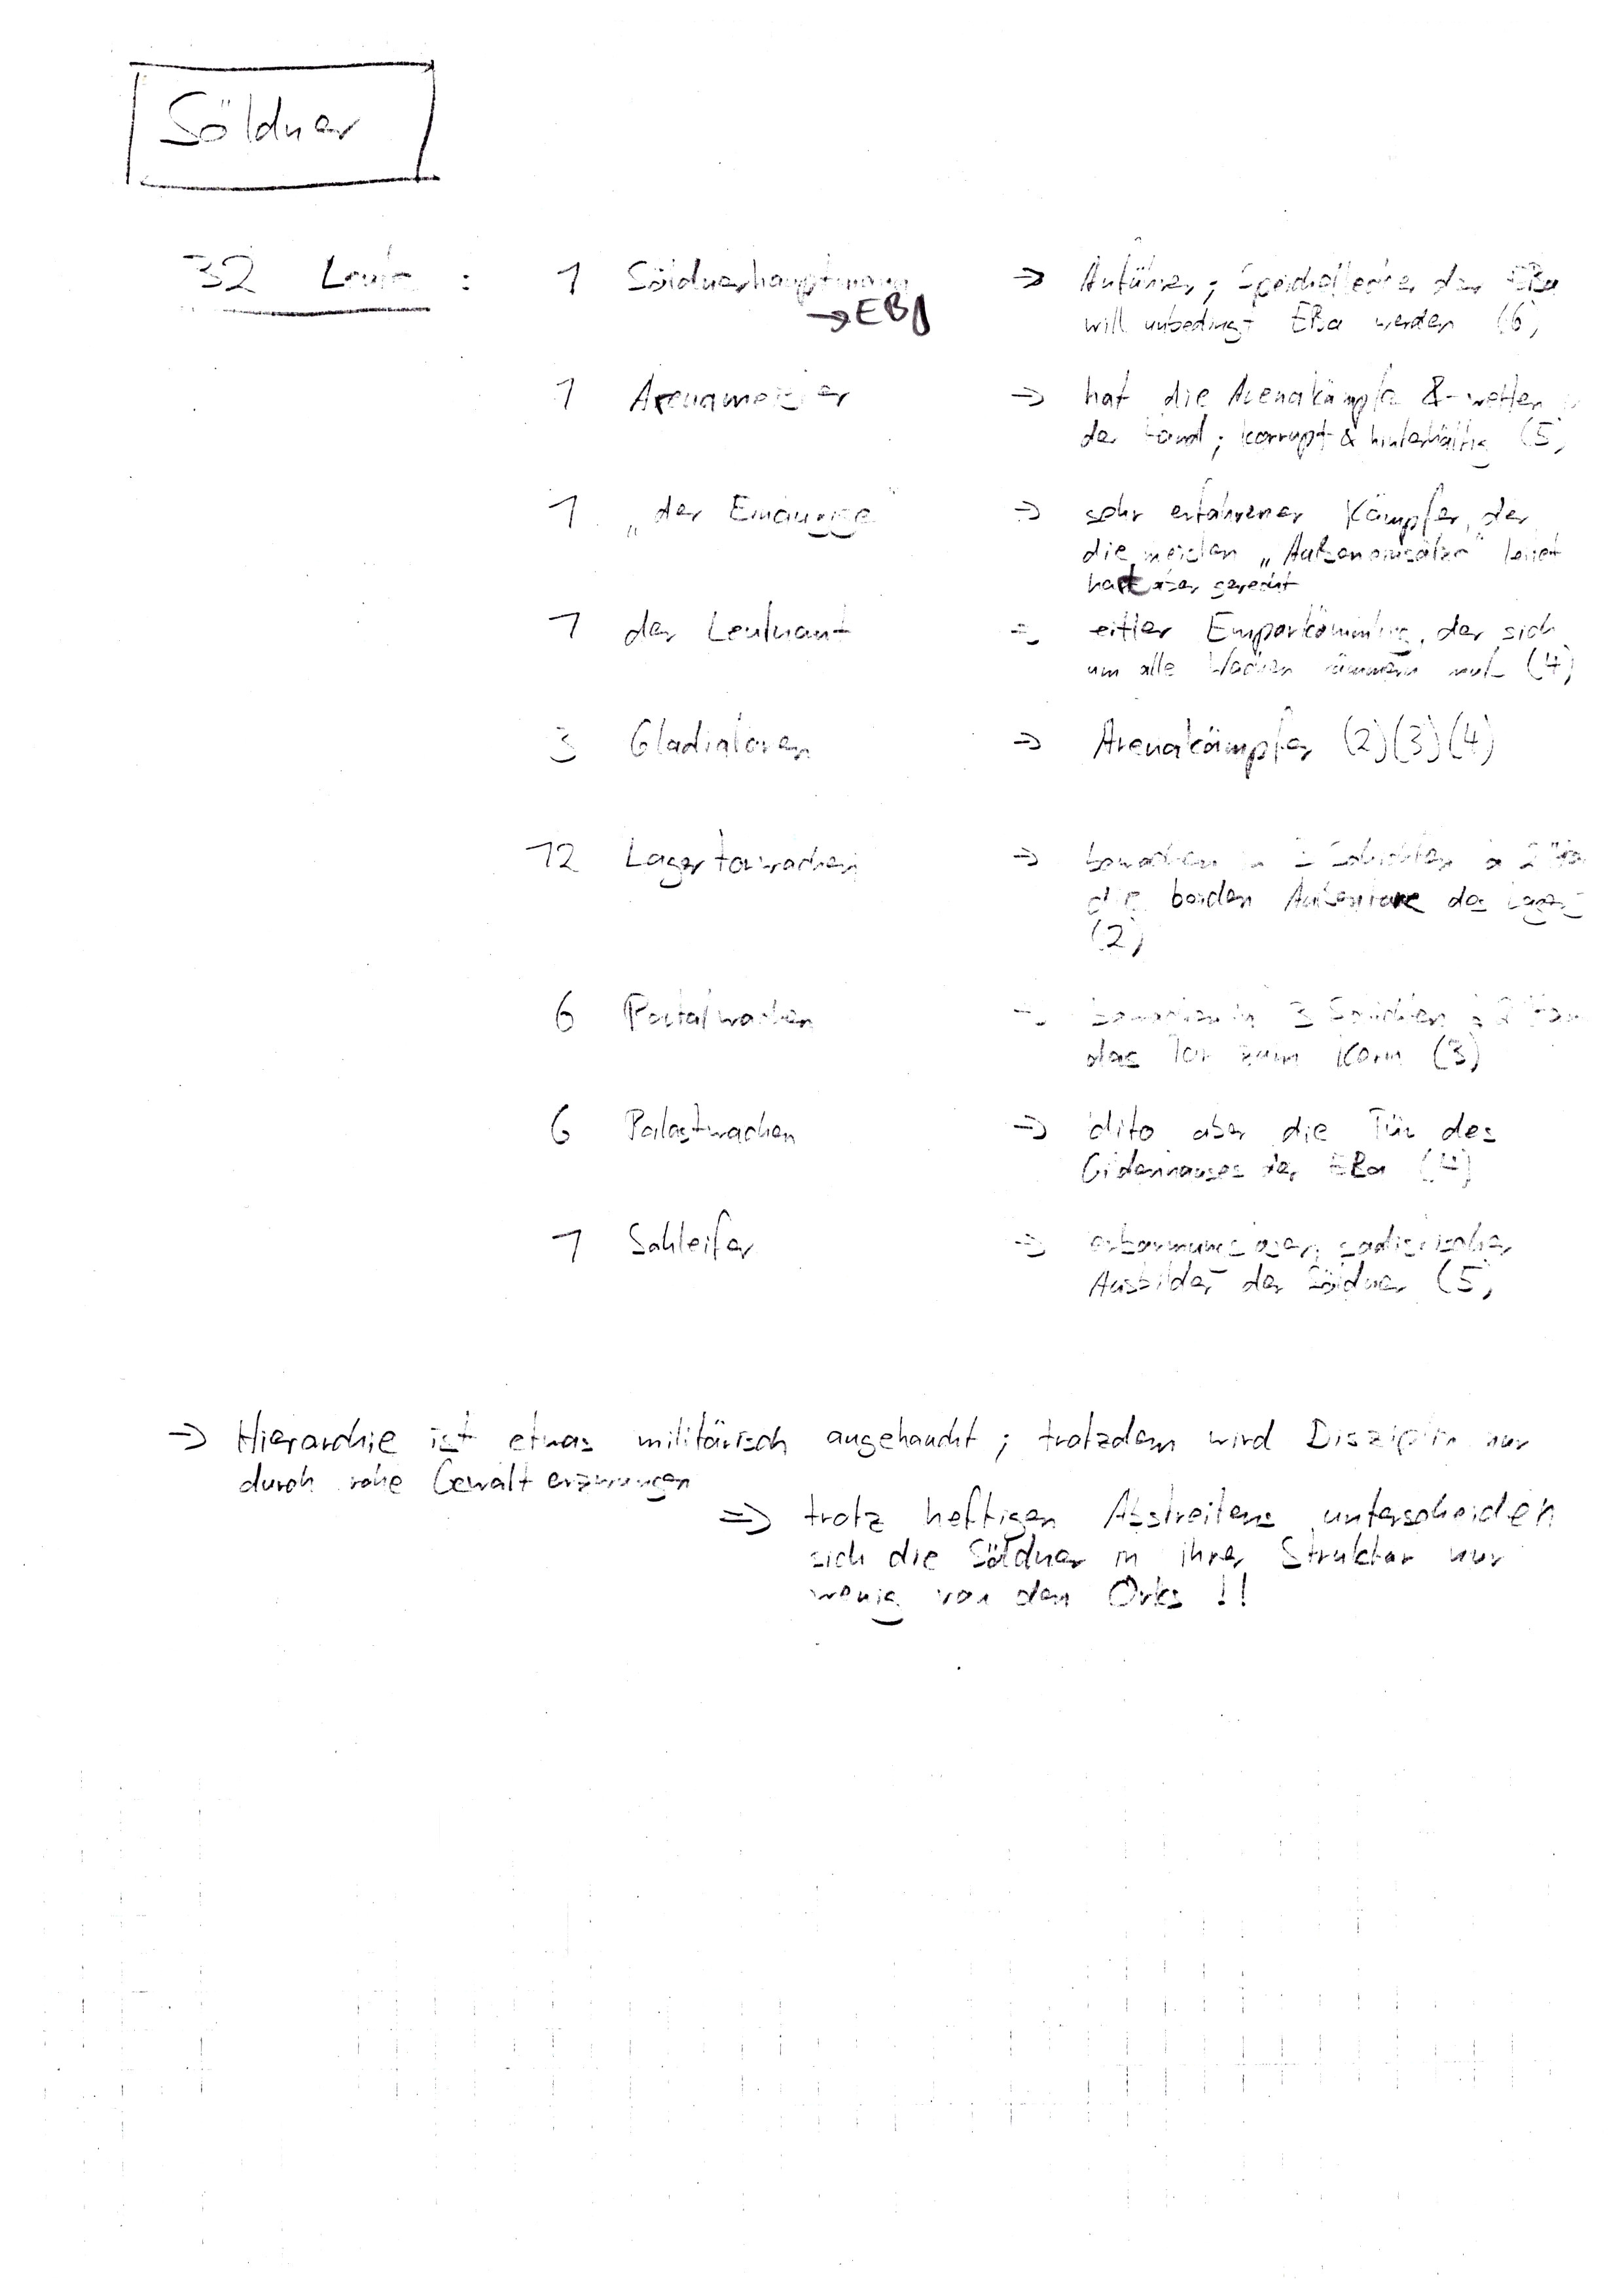 Söldner
32 Leute : 1 Söldnerhauptmann → Anführer; Speichellecker der EBa
→ EB will unbedingt EBa werden (6)
1 Arenameister → hat die Arenakämpfe & -wetten
der Hand; korrupt & hinterhältig (5)
1 „der Einäugige“ → sehr erfahrener Kämpfer, der
die meisten „Außeneinsätze“ leitet
hart aber gerecht
1 der Leutnant → eitler Emporkömmling, der sich
um alle Wachen kümmern muß (4)
3 Gladiatoren → Arenakämpfer (2)(3)(4)
12 Lagertorwachen → bewachen in 3 Schichten a 2
die beiden Außentore des Lagers
(2)
6 Portalwachen → bewachen in 3 Schichten a 2
das Tor zum Kern (3)
6 Palastwachen → dito aber die Tür des
der EBa (4)
1 Schleifer → erbarmungsloser, sadistischer
Ausbilder der Söldner (5)
→ Hierarchie ist etwas militärisch angehaucht; trotzdem wird Disziplin nur
durch rohe Gewalt erzwungen
⇒ trotz heftigen Abstreitens unterscheiden
sich die Söldner in ihrer Struktur nur
wenig von den Orks !!